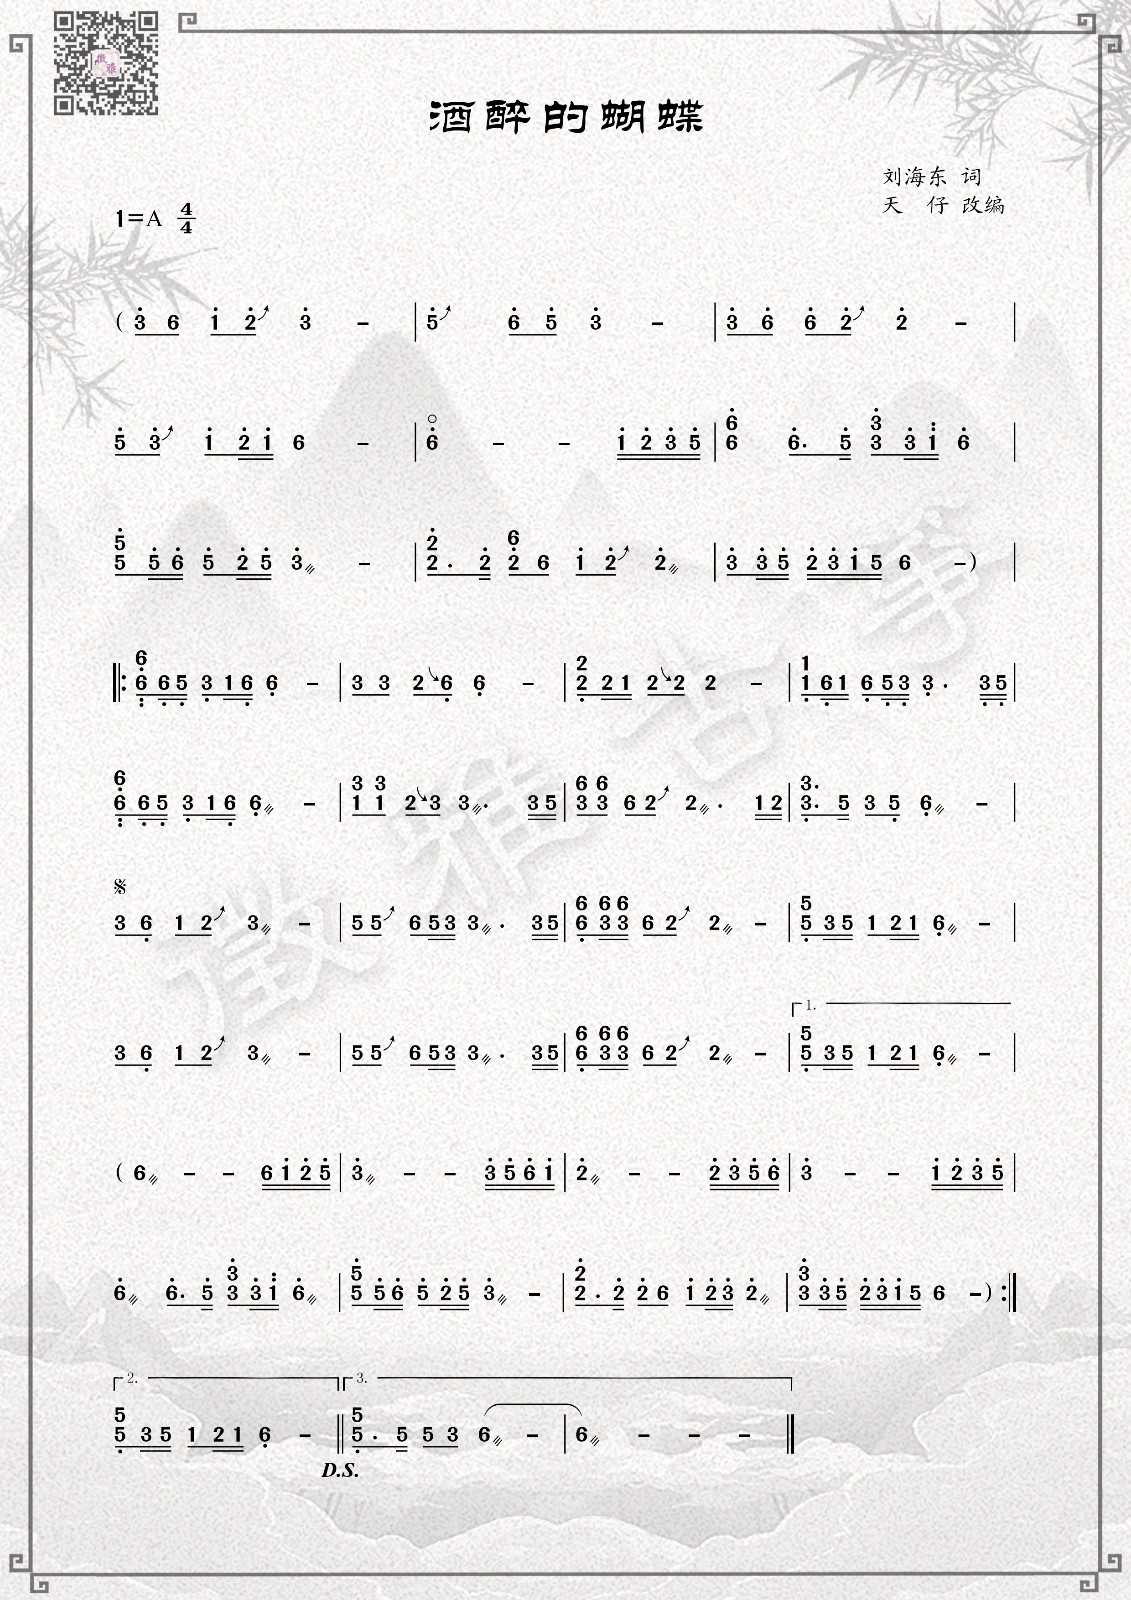 酒醉的蝴蝶
刘海东 词
天 仔 改编
1=A 4/4
( 3 6 1 2 3 - | 5 6 5 3 - | 3 6 6 2 2 - |
5 3 1 2 1 6 - | 6 - - 1 2 3 5 | 6 6 6. 5 3 3 3 1 6 |
5 5 5 6 5 2 5 3 - | 2 2. 2 6 2 6 1 2 2 | 3 3 5 2 3 1 5 6 - ) |
‖: 6 6 6 5 3 1 6 6 - | 3 3 2 6 6 - | 2 2 2 1 2 2 2 - | 1 1 6 1 6 5 3 3. 3 5 |
6 6 6 5 3 1 6 6 - | 3 3 1 1 2 3 3. 3 5 | 6 6 3 3 6 2 2. 1 2 | 3. 3. 5 3 5 6 - |
3 6 1 2 3 - | 5 5 6 5 3 3 3. 3 5 | 6 6 6 6 3 3 6 2 2 - | 5 5 3 5 1 2 1 6 - |
1.
3 6 1 2 3 - | 5 5 6 5 3 3 3. 3 5 | 6 6 6 6 3 3 6 2 2 - | 5 5 3 5 1 2 1 6 - |
( 6 - - 6 1 2 5 | 3 - - 3 5 6 1 | 2 - - 2 3 5 6 | 3 - - 1 2 3 5 |
6 6. 5 3 3 3 1 6 | 5 5 5 6 5 2 5 3 - | 2 2. 2 2 6 1 2 3 2 | 3 3 3 5 2 3 1 5 6 - ) :‖
2. 3.
5 5 3 5 1 2 1 6 - ‖ 5 5. 5 5 3 6 - | 6 - - - ‖
D.S.
徵雅古筝